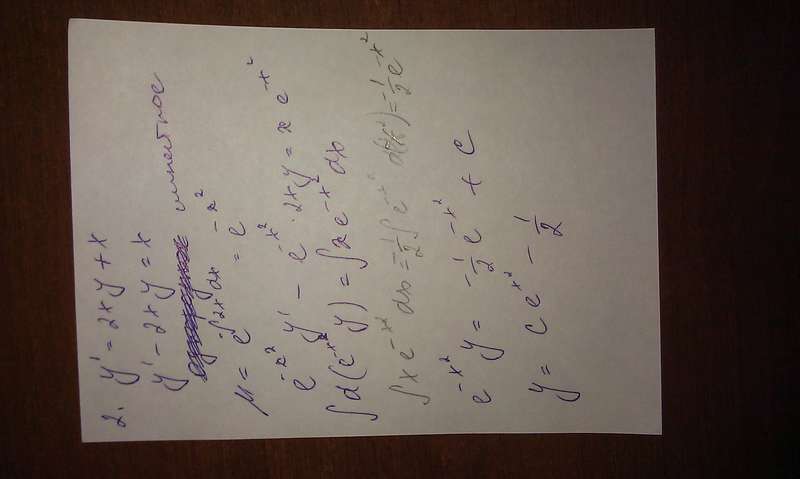 2. y' = 2xy + x
y' - 2xy = x
линейное
μ = e^{-∫2x dx} = e^{-x^2}
e^{-x^2} y' - e^{-x^2} · 2xy = x e^{-x^2}
∫d(e^{-x^2} y) = ∫x e^{-x^2} dx
∫x e^{-x^2} dx = -1/2 ∫e^{-x^2} d(-x^2) = -1/2 e^{-x^2}
e^{-x^2} y = -1/2 e^{-x^2} + C
y = C e^{x^2} - 1/2